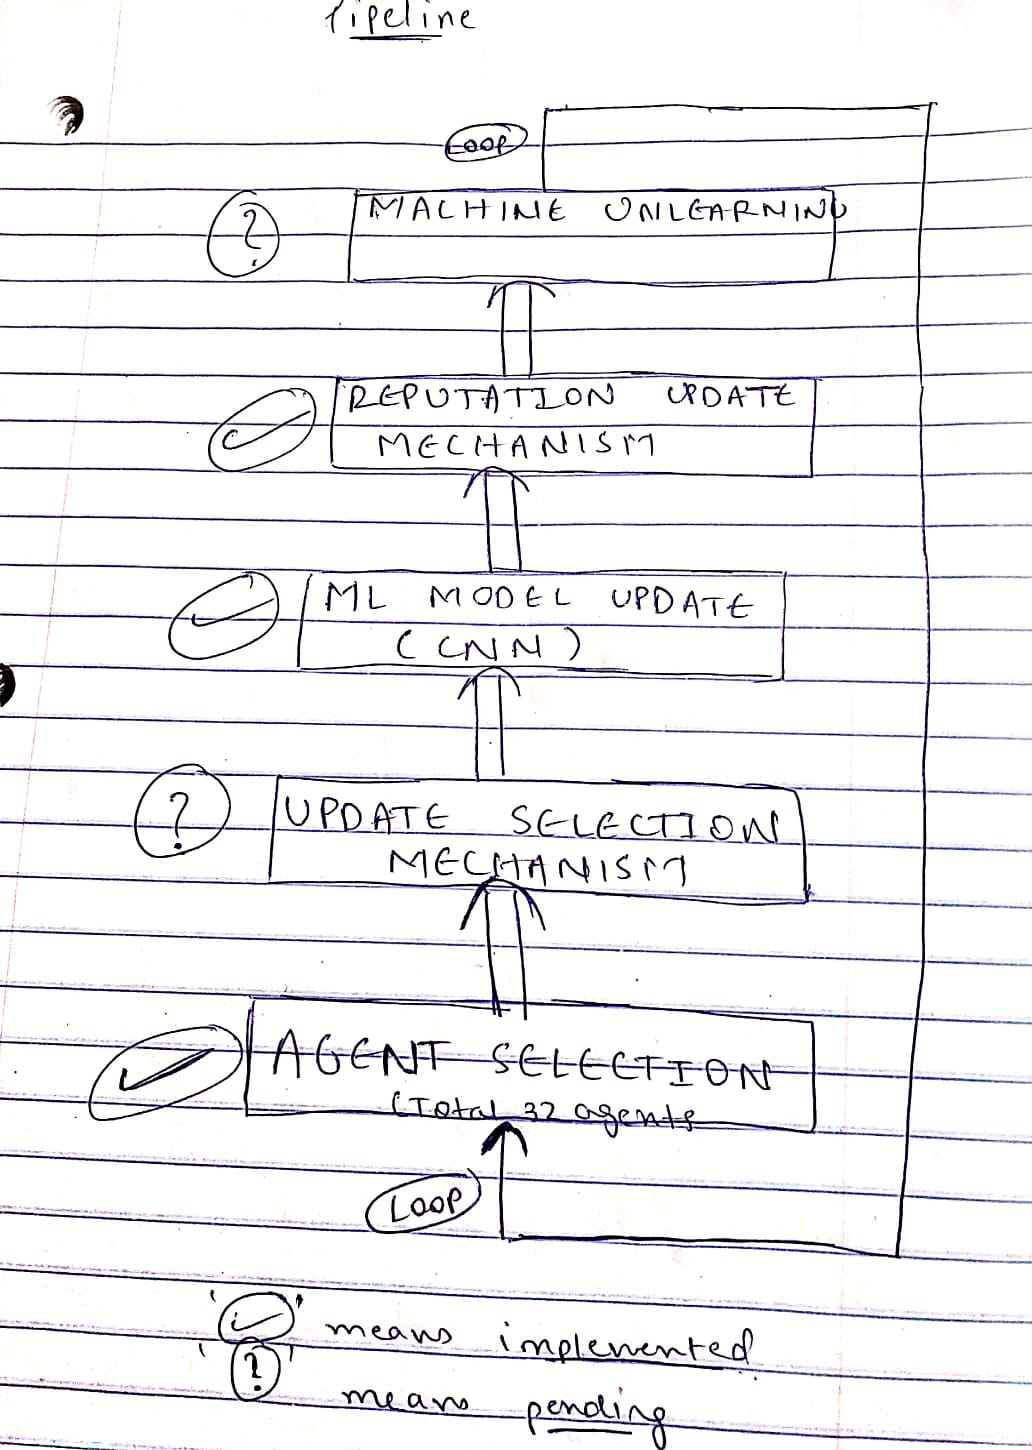 Pipeline
LOOP
MACHINE UNLEARNING
?
REPUTATION UPDATE
MECHANISM
ML MODEL UPDATE
(CNN)
?
UPDATE SELECTION
MECHANISM
AGENT SELECTION
(Total 32 agents
LOOP
"✓" means implemented
'?' means pending